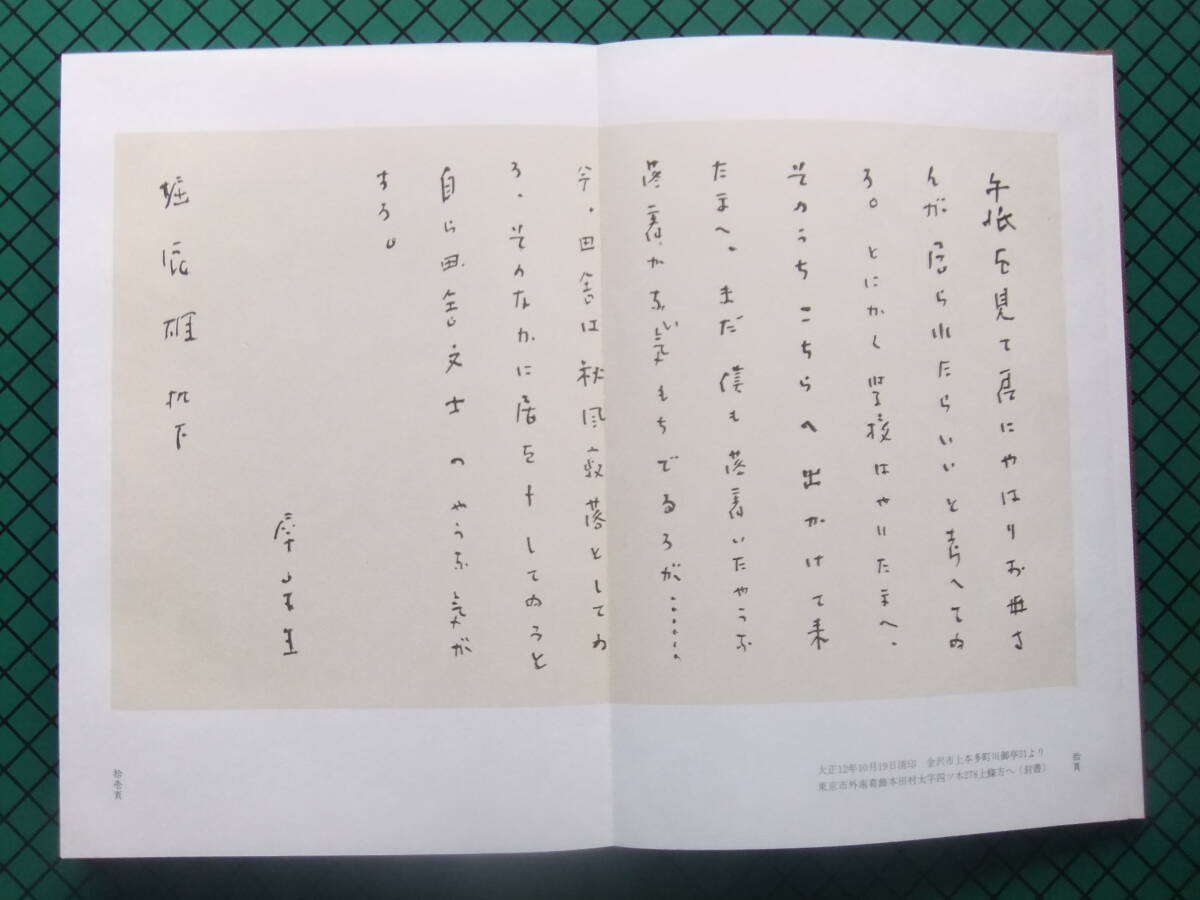 手紙を見て君にやはりお母さ
んが居られたらいいと考へてゐ
る。とにかく学校はやりたまへ、
そのうちこちらへ出かけて来
たまへ。まだ僕も落着いたやうな
落着かない気もちでゐるが、……。
今、田舎は秋風寂落としてゐ
る、そのなかに居を卜してゐると
自ら田舎文士のやうな気が
する。
犀星生
堀辰雄机下
大正12年10月19日消印　金沢市上本多町川御亭31より
東京市外南葛飾本田村大字四ツ木278上條方へ（封書）
拾頁
拾壱頁